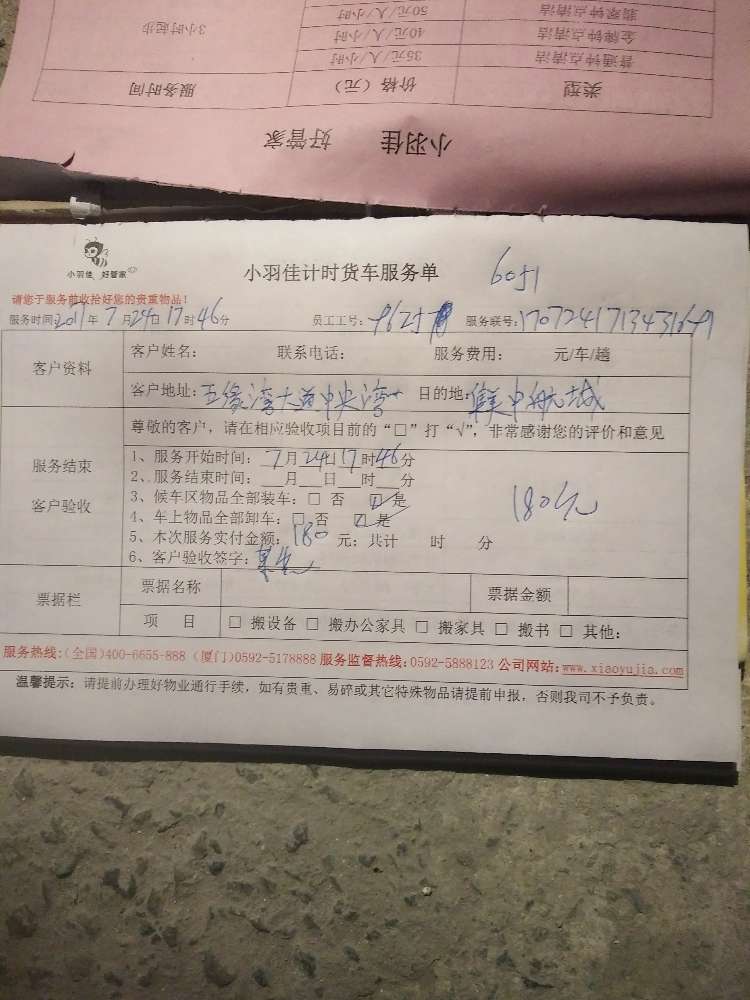 翡翠钟点清洁 50元/人/小时
金牌钟点清洁 40元/人/小时 3小时起步
普通钟点清洁 35元/人/小时
类型 价格（元） 服务时间
小羽佳 好管家
小羽佳 好管家
小羽佳计时货车服务单 6051
请您于服务前收拾好您的贵重物品！
服务时间:2017年7月24日17时46分 员工工号: 服务联号:
客户资料
客户姓名: 联系电话: 服务费用: 元/车/趟
客户地址:五缘湾大道中央湾 目的地:集美中航城
服务结束
客户验收
尊敬的客户，请在相应验收项目前的“□”打“√”，非常感谢您的评价和意见
1、服务开始时间: 7月24日17时46分
2、服务结束时间: 月 日 时 分
3、候车区物品全部装车: □ 否 ☑ 是
180元
4、车上物品全部卸车: □ 否 ☑ 是
5、本次服务实付金额: 180 元; 共计 时 分
6、客户验收签字:
票据栏
票据名称 票据金额
项 目 □ 搬设备 □ 搬办公家具 □ 搬家具 □ 搬书 □ 其他:
服务热线:(全国)400-6655-888 (厦门)0592-5178888 服务监督热线:0592-5888123 公司网站:www.xiaoyujia.com
温馨提示: 请提前办理好物业通行手续，如有贵重、易碎或其它特殊物品请提前申报，否则我司不予负责。